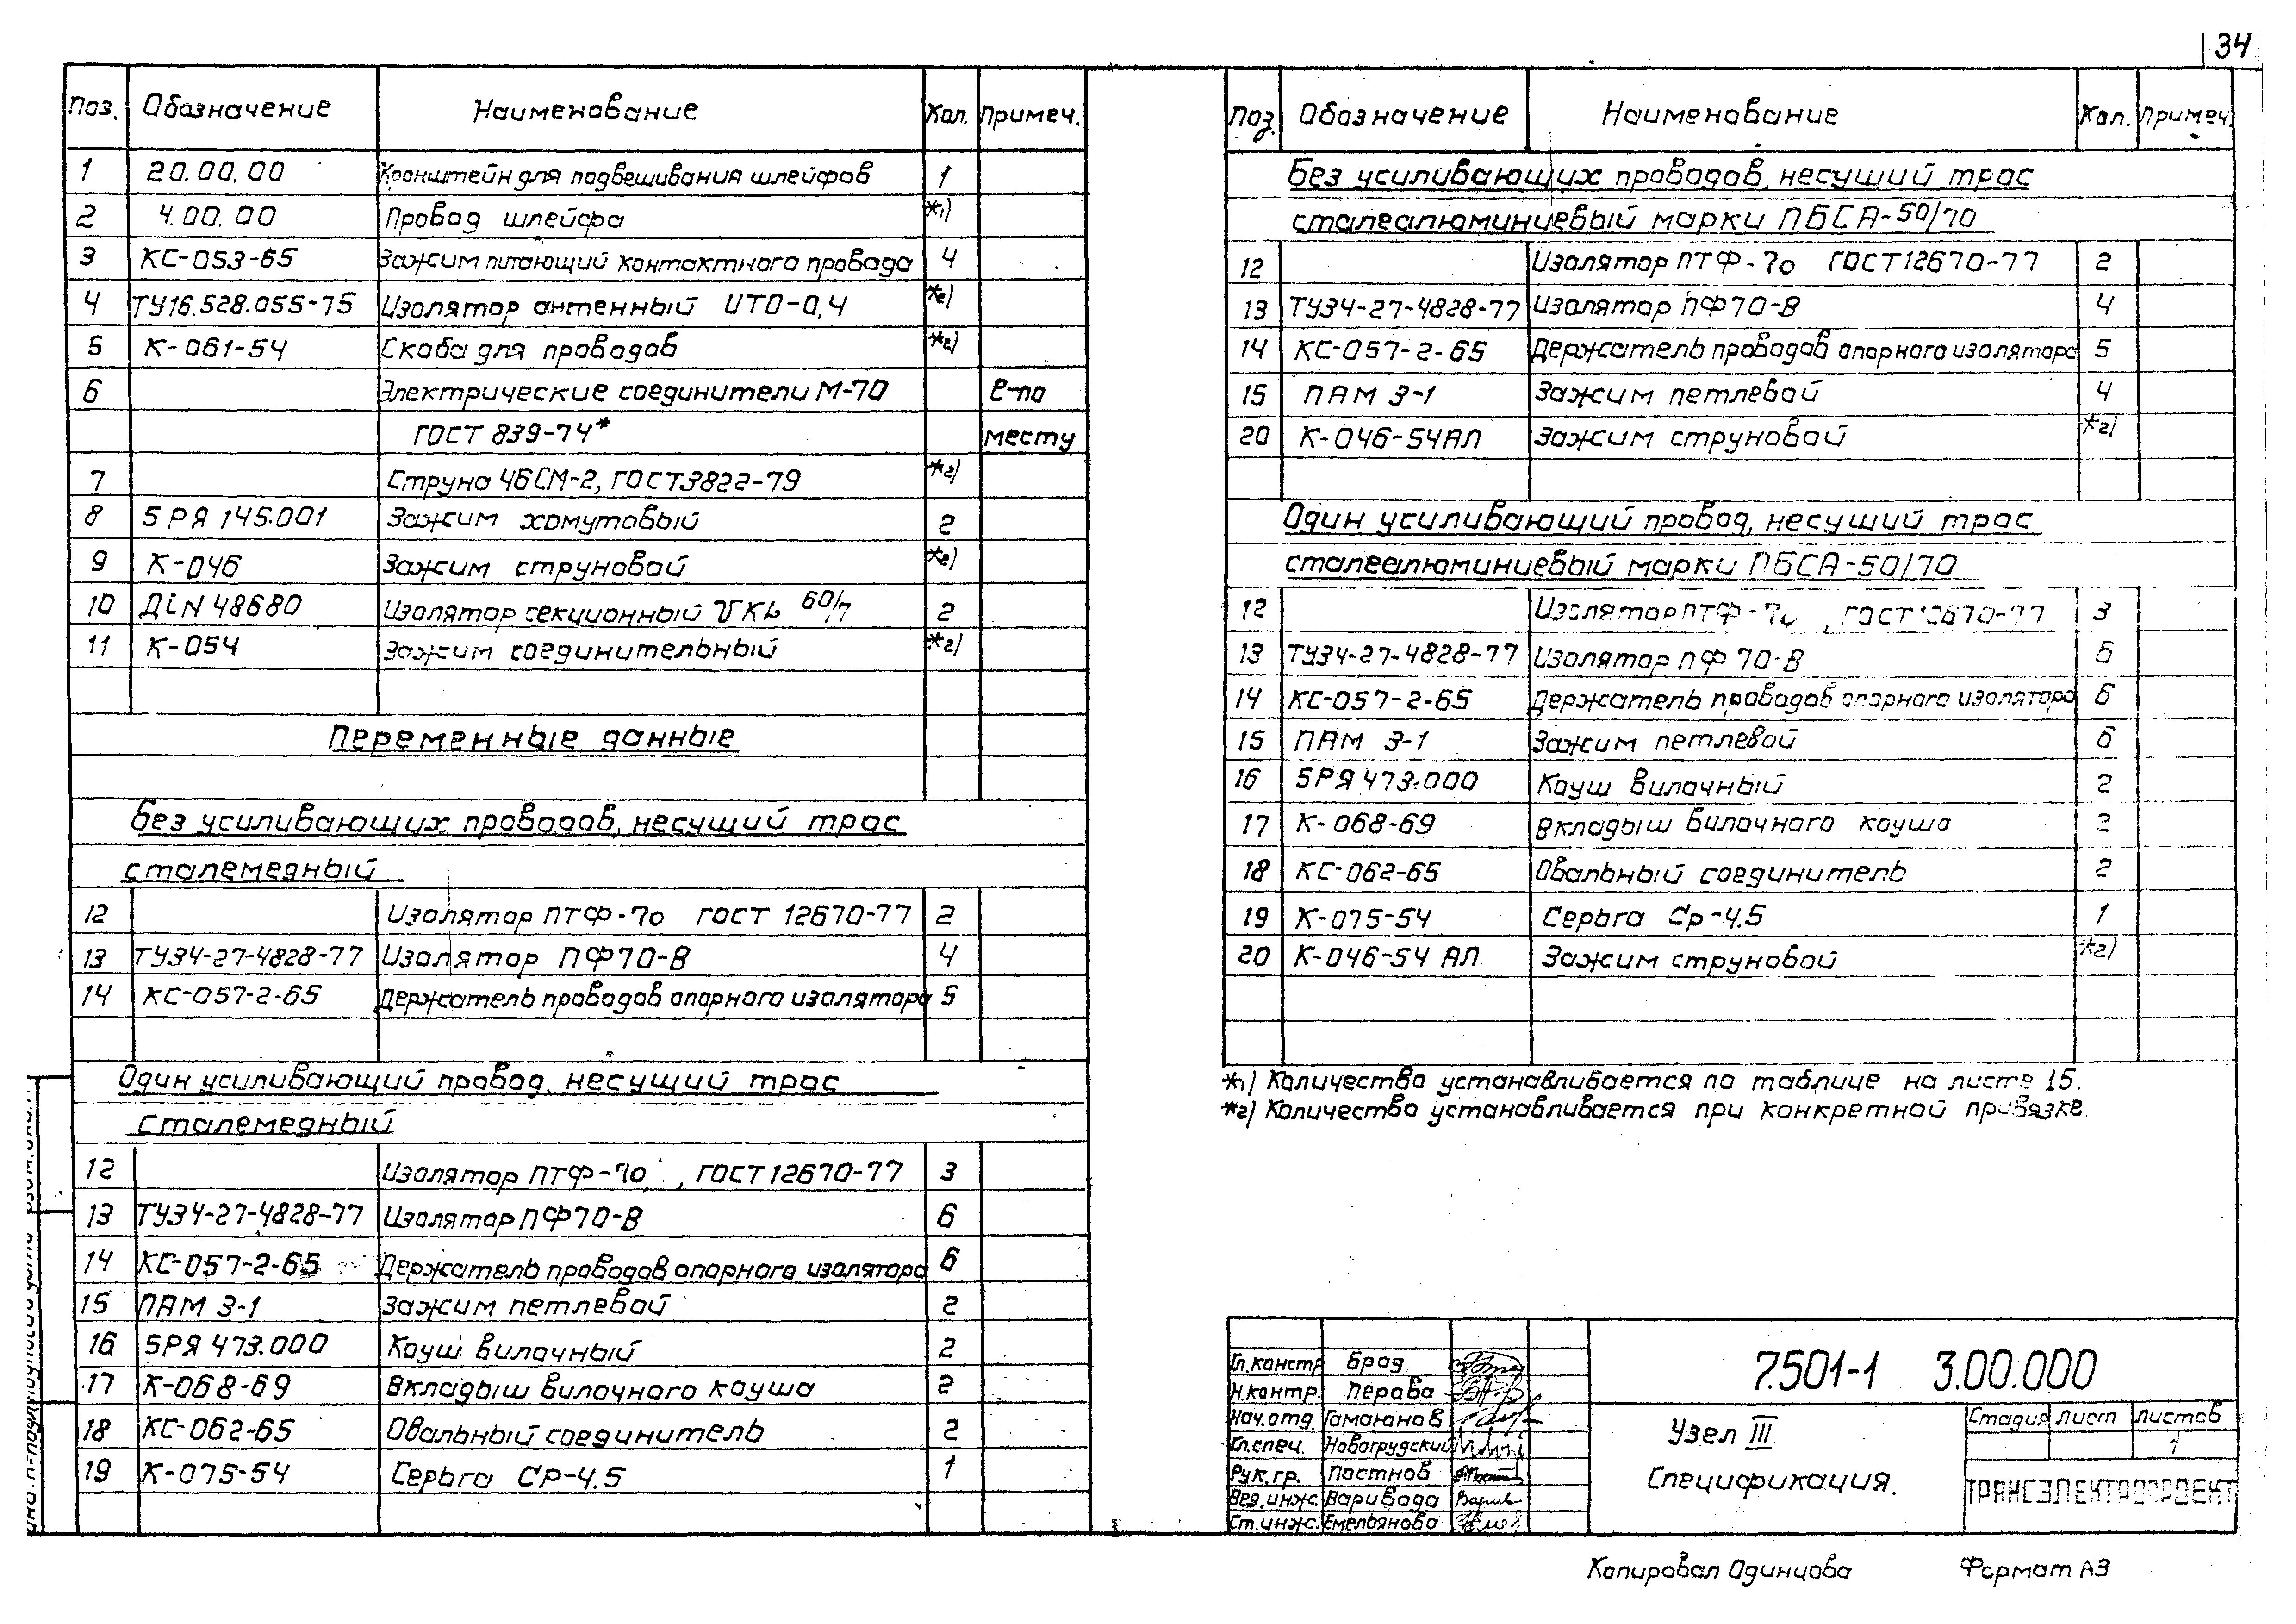 34
Поз. Обозначение Наименование Кол. Примеч.
1 20.00.00 Кронштейн для подвешивания шлейфов 1
2 4.00.00 Провод шлейфа *1)
3 КС-053-65 Зажим питающий контактного провода 4
4 ТУ16.528.055-75 Изолятор антенный ИТО-0,4 *2)
5 К-061-54 Скоба для проводов *2)
6 Электрические соединители М-70 е-по
ГОСТ 839-74* месту
7 Струна 4БСМ-2, ГОСТ3822-79 *2)
8 5РЯ 145.001 Зажим хомутовый 2
9 К-046 Зажим струновой *2)
10 ДiN 48680 Изолятор секционный 60/7 2
11 К-054 Зажим соединительный *2)
Переменные данные
Без усиливающих проводов, несущий трос
сталемедный
12 Изолятор ПТФ-70 ГОСТ 12670-77 2
13 ТУ34-27-4828-77 Изолятор ПФ70-В 4
14 КС-057-2-65 Держатель проводов опорного изолятора 5
Один усиливающий провод, несущий трос
сталемедный
12 Изолятор ПТФ-70, ГОСТ12670-77 3
13 ТУ34-27-4828-77 Изолятор ПФ70-В 6
14 КС-057-2-65 Держатель проводов опорного изолятора 6
15 ПАМ 3-1 Зажим петлевой 2
16 5РЯ 473.000 Коуш вилочный 2
17 К-068-69 Вкладыш вилочного коуша 2
18 КС-062-65 Овальный соединитель 2
19 К-075-54 Серьга СР-4.5 1
Поз. Обозначение Наименование Кол. Примеч.
Без усиливающих проводов, несущий трос
сталеалюминиевый марки ПБСА-50/70
12 Изолятор ПТФ-70 ГОСТ12670-77 2
13 ТУ34-27-4828-77 Изолятор ПФ70-В 4
14 КС-057-2-65 Держатель проводов опорного изолятора 5
15 ПАМ 3-1 Зажим петлевой 4
20 К-046-54АЛ Зажим струновой *2)
Один усиливающий провод, несущий трос
сталеалюминиевый марки ПБСА-50/70
12 Изолятор ПТФ-70, ГОСТ12670-77 3
13 ТУ34-27-4828-77 Изолятор ПФ 70-В 6
14 КС-057-2-65 Держатель проводов опорного изолятора 6
15 ПАМ 3-1 Зажим петлевой 6
16 5РЯ 473.000 Коуш вилочный 2
17 К-068-69 Вкладыш вилочного коуша 2
18 КС-062-65 Овальный соединитель 2
19 К-075-54 Серьга Ср-4.5 1
20 К-046-54 АЛ Зажим струновой *2)
*1) Количество устанавливается по таблице на листе 15.
*2) Количество устанавливается при конкретной привязке.
Гл.констр Брод
Н.контр. Перова
Нач.отд. Гамаюнов
Гл.спец. Новогрудский
Рук.гр. Постнов
Вед.инж. Варивода
Ст.инж. Емельянова
7.501-1 3.00.000
Узел III
Спецификация.
Стадия Лист Листов
1
ТРАНСЭЛЕКТРОПРОЕКТ
Копировал Одинцова Формат А3